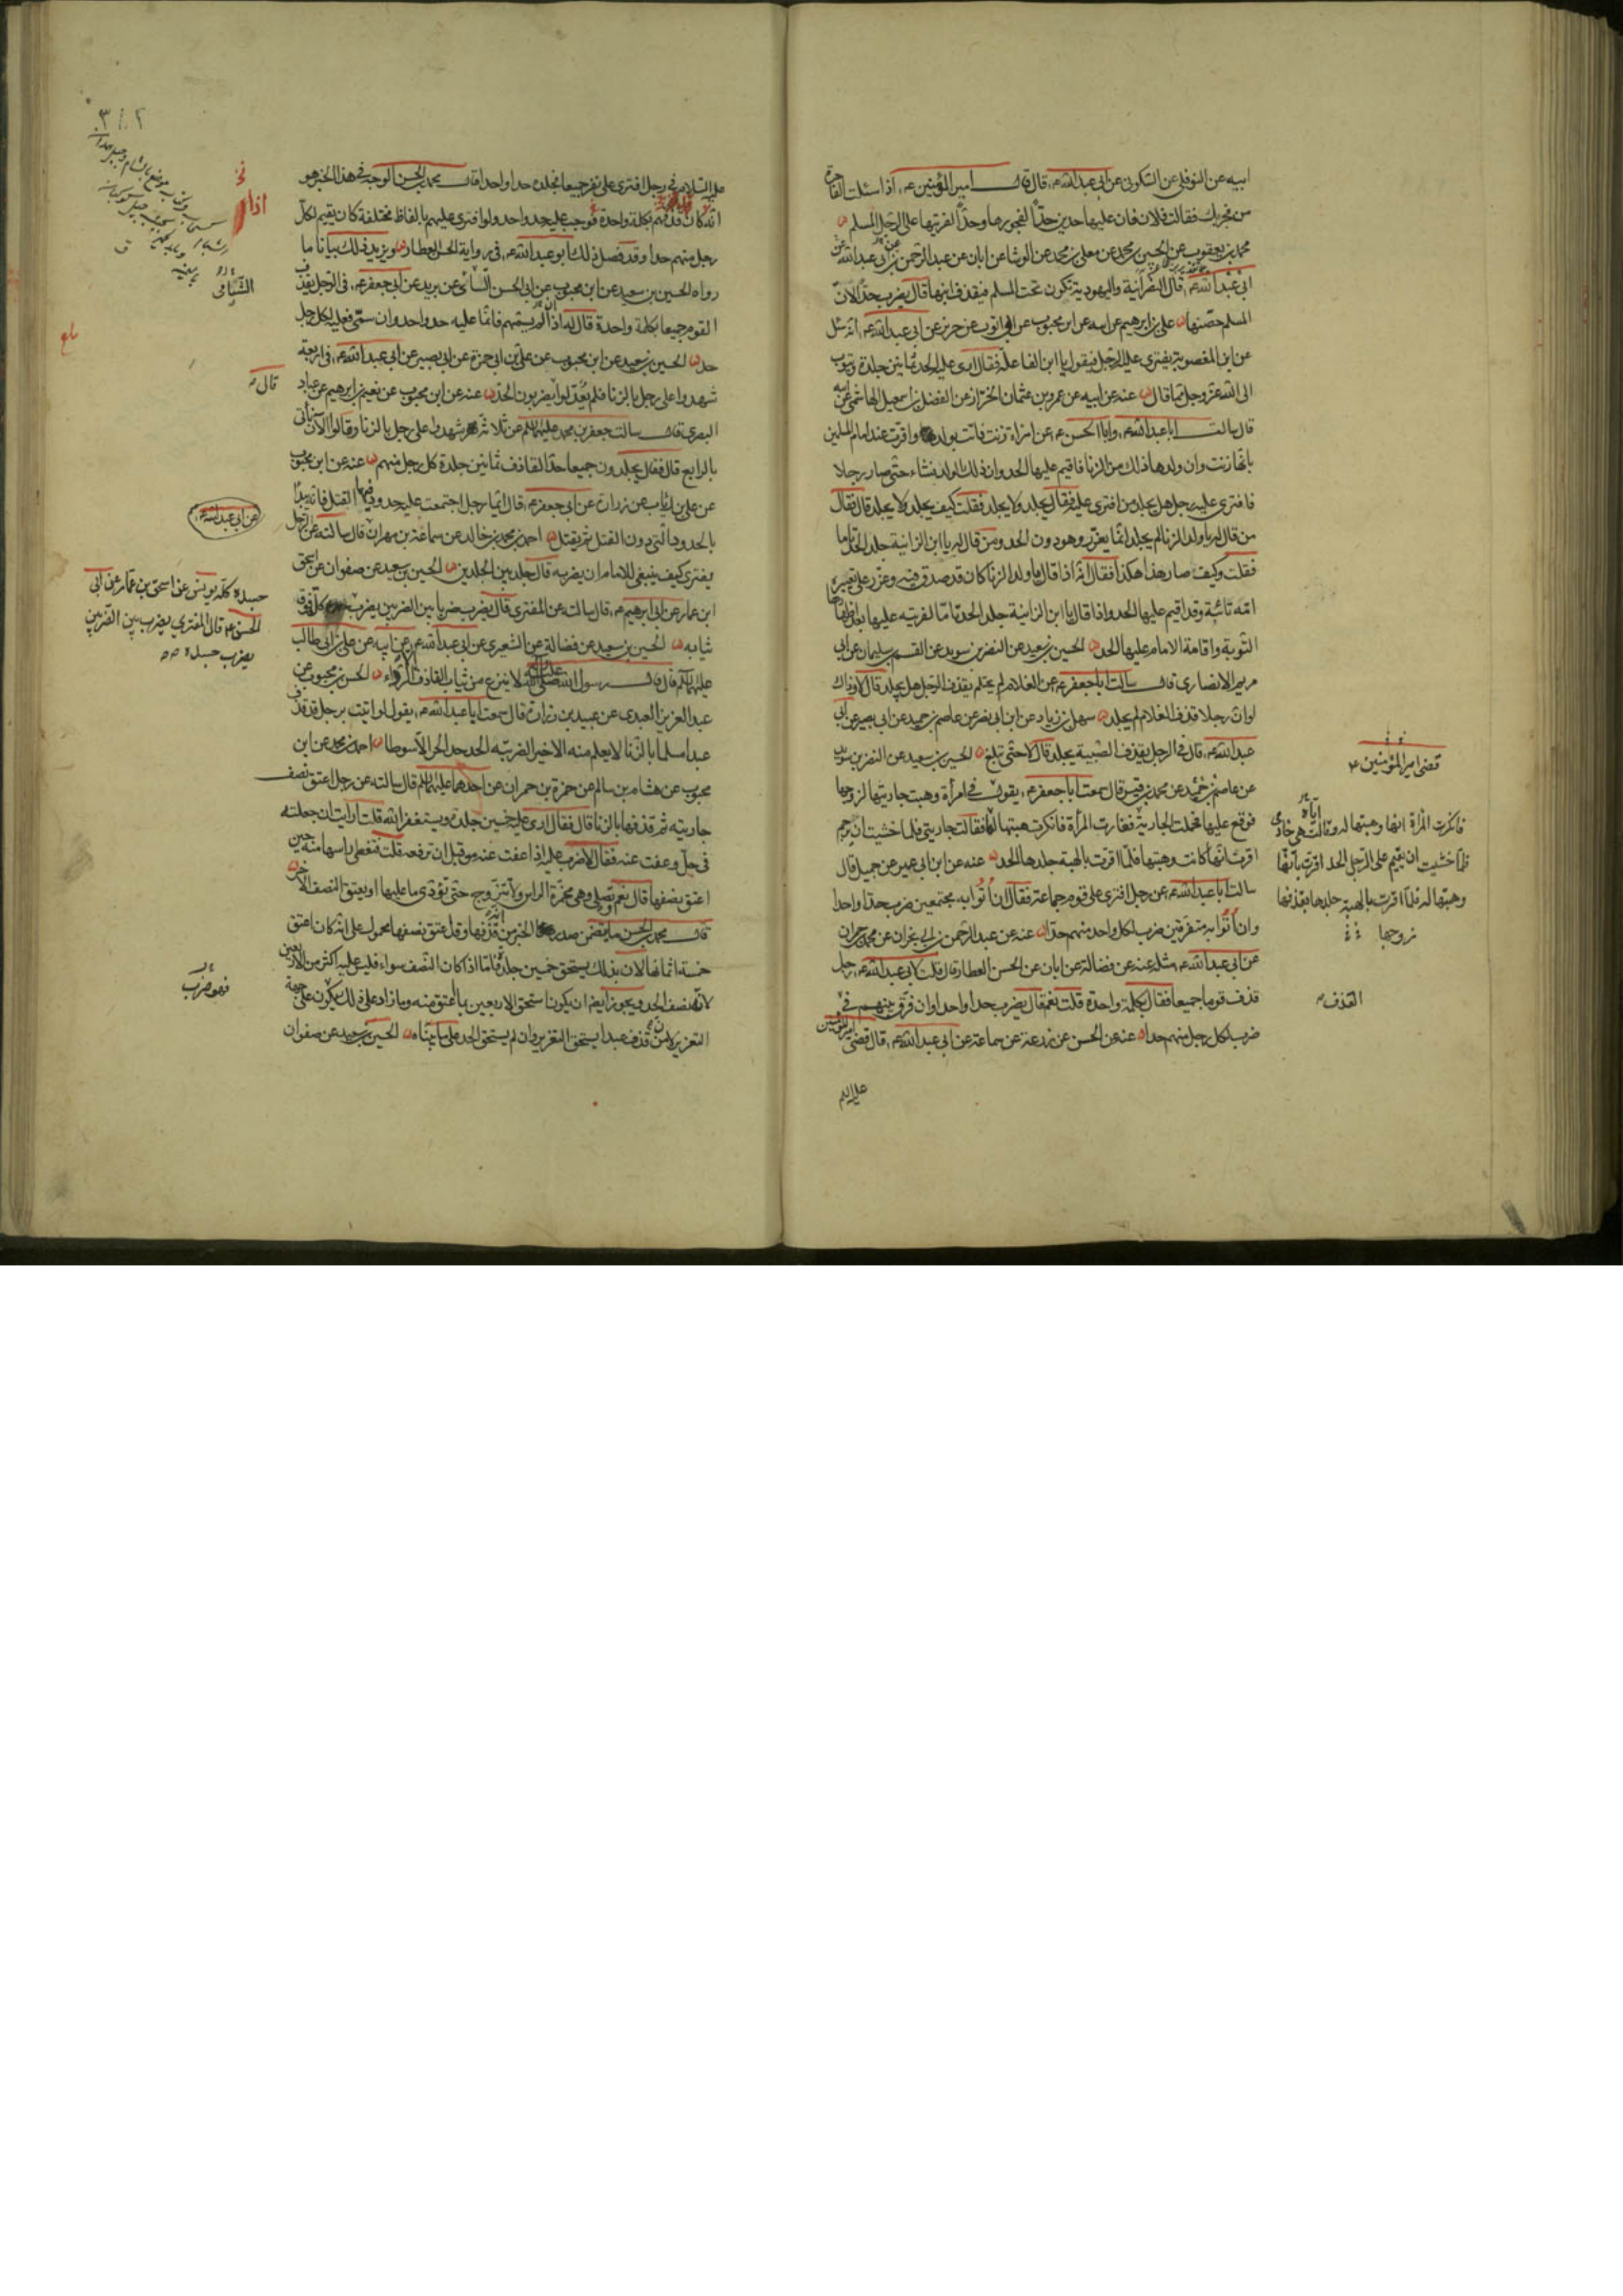 ابيه عن النوفلى عن السكونى عن ابى عبد الله ع قال قال امير المؤمنين ع اذا سئلت الفاجرة
من فجر بك فقالت فلان فان عليها حدين حدّا لفجورها وحدّا لفريتها على الرجل المسلم
محمد بن يعقوب عن الحسين بن محمد عن معلى بن محمد عن الوشا عن ابان عن عبد الرحمن بن ابى عبد الله عن
ابى عبد الله ع قال النصرانية واليهودية تكون تحت المسلم فيقذف ابنها قال يضرب حدّا لانّ
المسلم حصّنها على بن ابرهيم عن ابيه عن ابن محبوب عن ابى ايوب عن حريز عن ابى عبد الله ع انه سئل
عن ابن المغصوبة يفترى عليه الرجل فيقول يا ابن الفاعلة فقال ارى عليه الحد ثمانين جلدة ويتوب
الى الله عز وجل مما قال عنه عن ابيه عن عمرو بن عثمان الخزاز عن الفضل بن اسمعيل الهاشمى عن ابيه
قال سالت ابا عبد الله ع وابا الحسن ع عن امراة زنت فاتت بولد واقرت عند امام المسلمين
بانها زنت وان ولدها ذلك من الزنا فاقيم عليها الحد وان ذلك الولد نشاء حتى صار رجلا
فافترى عليه رجل هل يجلد من افترى عليه فقال يجلد ولا يجلد فقلت كيف يجلد ولا يجلد قال فقال
من قال له يا ولد الزنا لم يجلد انما يعزّر وهو دون الحد ومن قال له يا ابن الزانية جلد الحد تاما
فقلت وكيف صار هذا هكذا فقال انه اذا قال يا ولد الزنا كان قد صدق فيه وعزر على تعييره
امه ثانية وقد اقيم عليها الحد واذا قال يا ابن الزانية جلد الحد تامّا لفريته عليها بعد اظهارها
التوبة واقامة الامام عليها الحد الحسين بن سعيد عن النضر بن سويد عن القسم بن سليمان عن ابى
مريم الانصارى قال سالت ابا جعفر ع عن الغلام لم يحتلم يقذف الرجل هل يجلد قال لا وذاك
لو ان رجلا قذف الغلام لم يجلد سهل بن زياد عن ابن ابى نصر عن عاصم بن حميد عن ابى بصير عن ابى
عبد الله ع قال فى الرجل يقذف الصبية يجلد قال لا حتى تبلغ الحسين بن سعيد عن النضر بن سويد
عن عاصم بن حميد عن محمد بن قيس قال سمعت ابا جعفر ع يقول فى امرأة وهبت جاريتها لزوجها
فوقع عليها فحملت الجارية فغارت المرأة فانكرت هبتها له فقالت جاريتى فلما خشيت ان يرجم
اقرت انها كانت وهبتها فلمّا اقرت بالهبة جلدها الحد عنه عن ابن ابى عمير عن جميل قال
سالت ابا عبد الله ع عن رجل افترى على قوم جماعة فقال ان اتوا به مجتمعين ضرب حدّا واحدا
وان اتوا به متفرقين ضرب لكل واحد منهم حدّا عنه عن عبد الرحمن بن ابى نجران عن محمد بن حمران
عن ابى عبد الله ع مثله عنه عن فضالة عن ابان عن الحسن العطار قال قلت لابى عبد الله ع رجل
قذف قوما جميعا فقال بكلمة واحدة قلت نعم قال يضرب حدا واحدا وان فرّق بينهم فى
ضرب لكل رجل منهم حدا عنه عن الحسن عن زرعة عن سماعة عن ابى عبد الله ع قال قضى امير المؤمنين
عليه السلم
قضى امير المؤمنين ع
فانكرت المرأة انها وهبتها له وقالت هى خادمى
فلمّا خشيت ان يقيم على الرجل الحد اقرت بانها
وهبتها له فلمّا اقرت بالهبة جلدها بقذفها
زوجها
القذف
عليه السلام فى رجل افترى على نفر جميعا فجلده حدا واحدا قال محمد بن الحسن الوجه فى هذا الخبر هو
انه كان قذفهم بكلمة واحدة فوجب عليه حد واحد ولو افترى عليهم بالفاظ مختلفة كان يقيم لكل
رجل منهم حدا وقد فصل ذلك ابو عبد الله ع فى رواية الحسن العطار ويزيد ذلك بيانا ما
رواه الحسين بن سعيد عن ابن محبوب عن ابى الحسن الشامى عن بريد عن ابى جعفر ع فى الرجل يقذف
القوم جميعا بكلمة واحدة قال له اذا لم يسمهم فانّما عليه حد واحد وان سمّى فعليه لكل رجل
حد الحسين بن سعيد عن ابن محبوب عن على بن ابى حمزة عن ابى بصير عن ابى عبد الله ع فى اربعة
شهدوا على رجل بالزنا فلم يعدّلوا يضربون الحد عنه عن ابن محبوب عن نعيم بن ابرهيم عن عباد
البصرى قال سالت جعفر بن محمد عليهما السلم عن ثلاثة شهدوا على رجل بالزنا وقالوا الان ناتى
بالرابع قال فقال يجلدون جميعا حدّ القاذف ثمانين جلدة كل رجل منهم عنه عن ابن محبوب
عن على بن رئاب عن زرارة عن ابى جعفر ع قال ايّما رجل اجتمعت عليه حدود فيها القتل فانه يبدا
بالحدود التى دون القتل ثم يقتل احمد بن محمد بن خالد عن سماعة بن مهران قال سالته عن الرجل
يفترى كيف ينبغى للامام ان يضربه قال جلد بين الجلدين الحسين بن سعيد عن صفوان عن اسحق
ابن عمار عن ابى ابرهيم ع قال سالته عن المفترى قال يضرب ضربا بين الضربين يضرب جسده كله فوق
ثيابه الحسين بن سعيد عن فضالة عن الشعيرى عن ابى عبد الله ع عن ابيه عن على بن ابى طالب
عليهم السلم قال قال رسول الله صلى الله عليه واله لا ينزع من ثياب القاذف الا الرداء الحسن بن محبوب عن
عبد العزيز العبدى عن عبيد بن زرارة قال سمعت ابا عبد الله ع يقول لو اتيت برجل قد قذف
عبدا مسلما بالزنا لا يعلم منه الا خيرا لضربته الحد حد الحر الا سوطا احمد بن محمد عن ابن
محبوب عن هشام بن سالم عن حمزة بن حمران عن احدهما عليهما السلم قال سالته عن رجل اعتق نصف
جاريته ثم قذفها بالزنا قال فقال ارى عليه خمسين جلدة ويستغفر الله قلت ارايت ان جعلته
فى حل وعفت عنه فقال لا ضرب عليه اذا عفت عنه من قبل ان ترفعه قلت فتغطى راسها منه حين
اعتق نصفها قال نعم وتصلى وهى مخمّرة الراس ولا تتزوج حتى تؤدى ما عليها او يعتق النصف الاخر
قال محمد بن الحسن ما يتضمن صدر هذا الخبر من انه قذفها وقد اعتق نصفها محمول على انه كان اعتق
خمسة اثمانها لان بذلك يستحق خمسين جلدة فامّا اذا كان النصف سواء فليس عليه اكثر من الاربعين
لانه نصف الحد ويجوز ايضا ان يكون استحق الاربعين بما اعتق منه وما زاد على ذلك يكون على جهة
التعزير لان من قذف عبدا يستحق التعزير وان لم يستحق الحد على ما بيّناه الحسين بن سعيد عن صفوان
اذا
الشّبامى
قال
عن ابى عبد الله ع
جسده كله يونس عن اسحق بن عمار عن ابى
الحسن ع قال المفترى يضرب بين الضربين
يضرب جسده
فهو ضرب